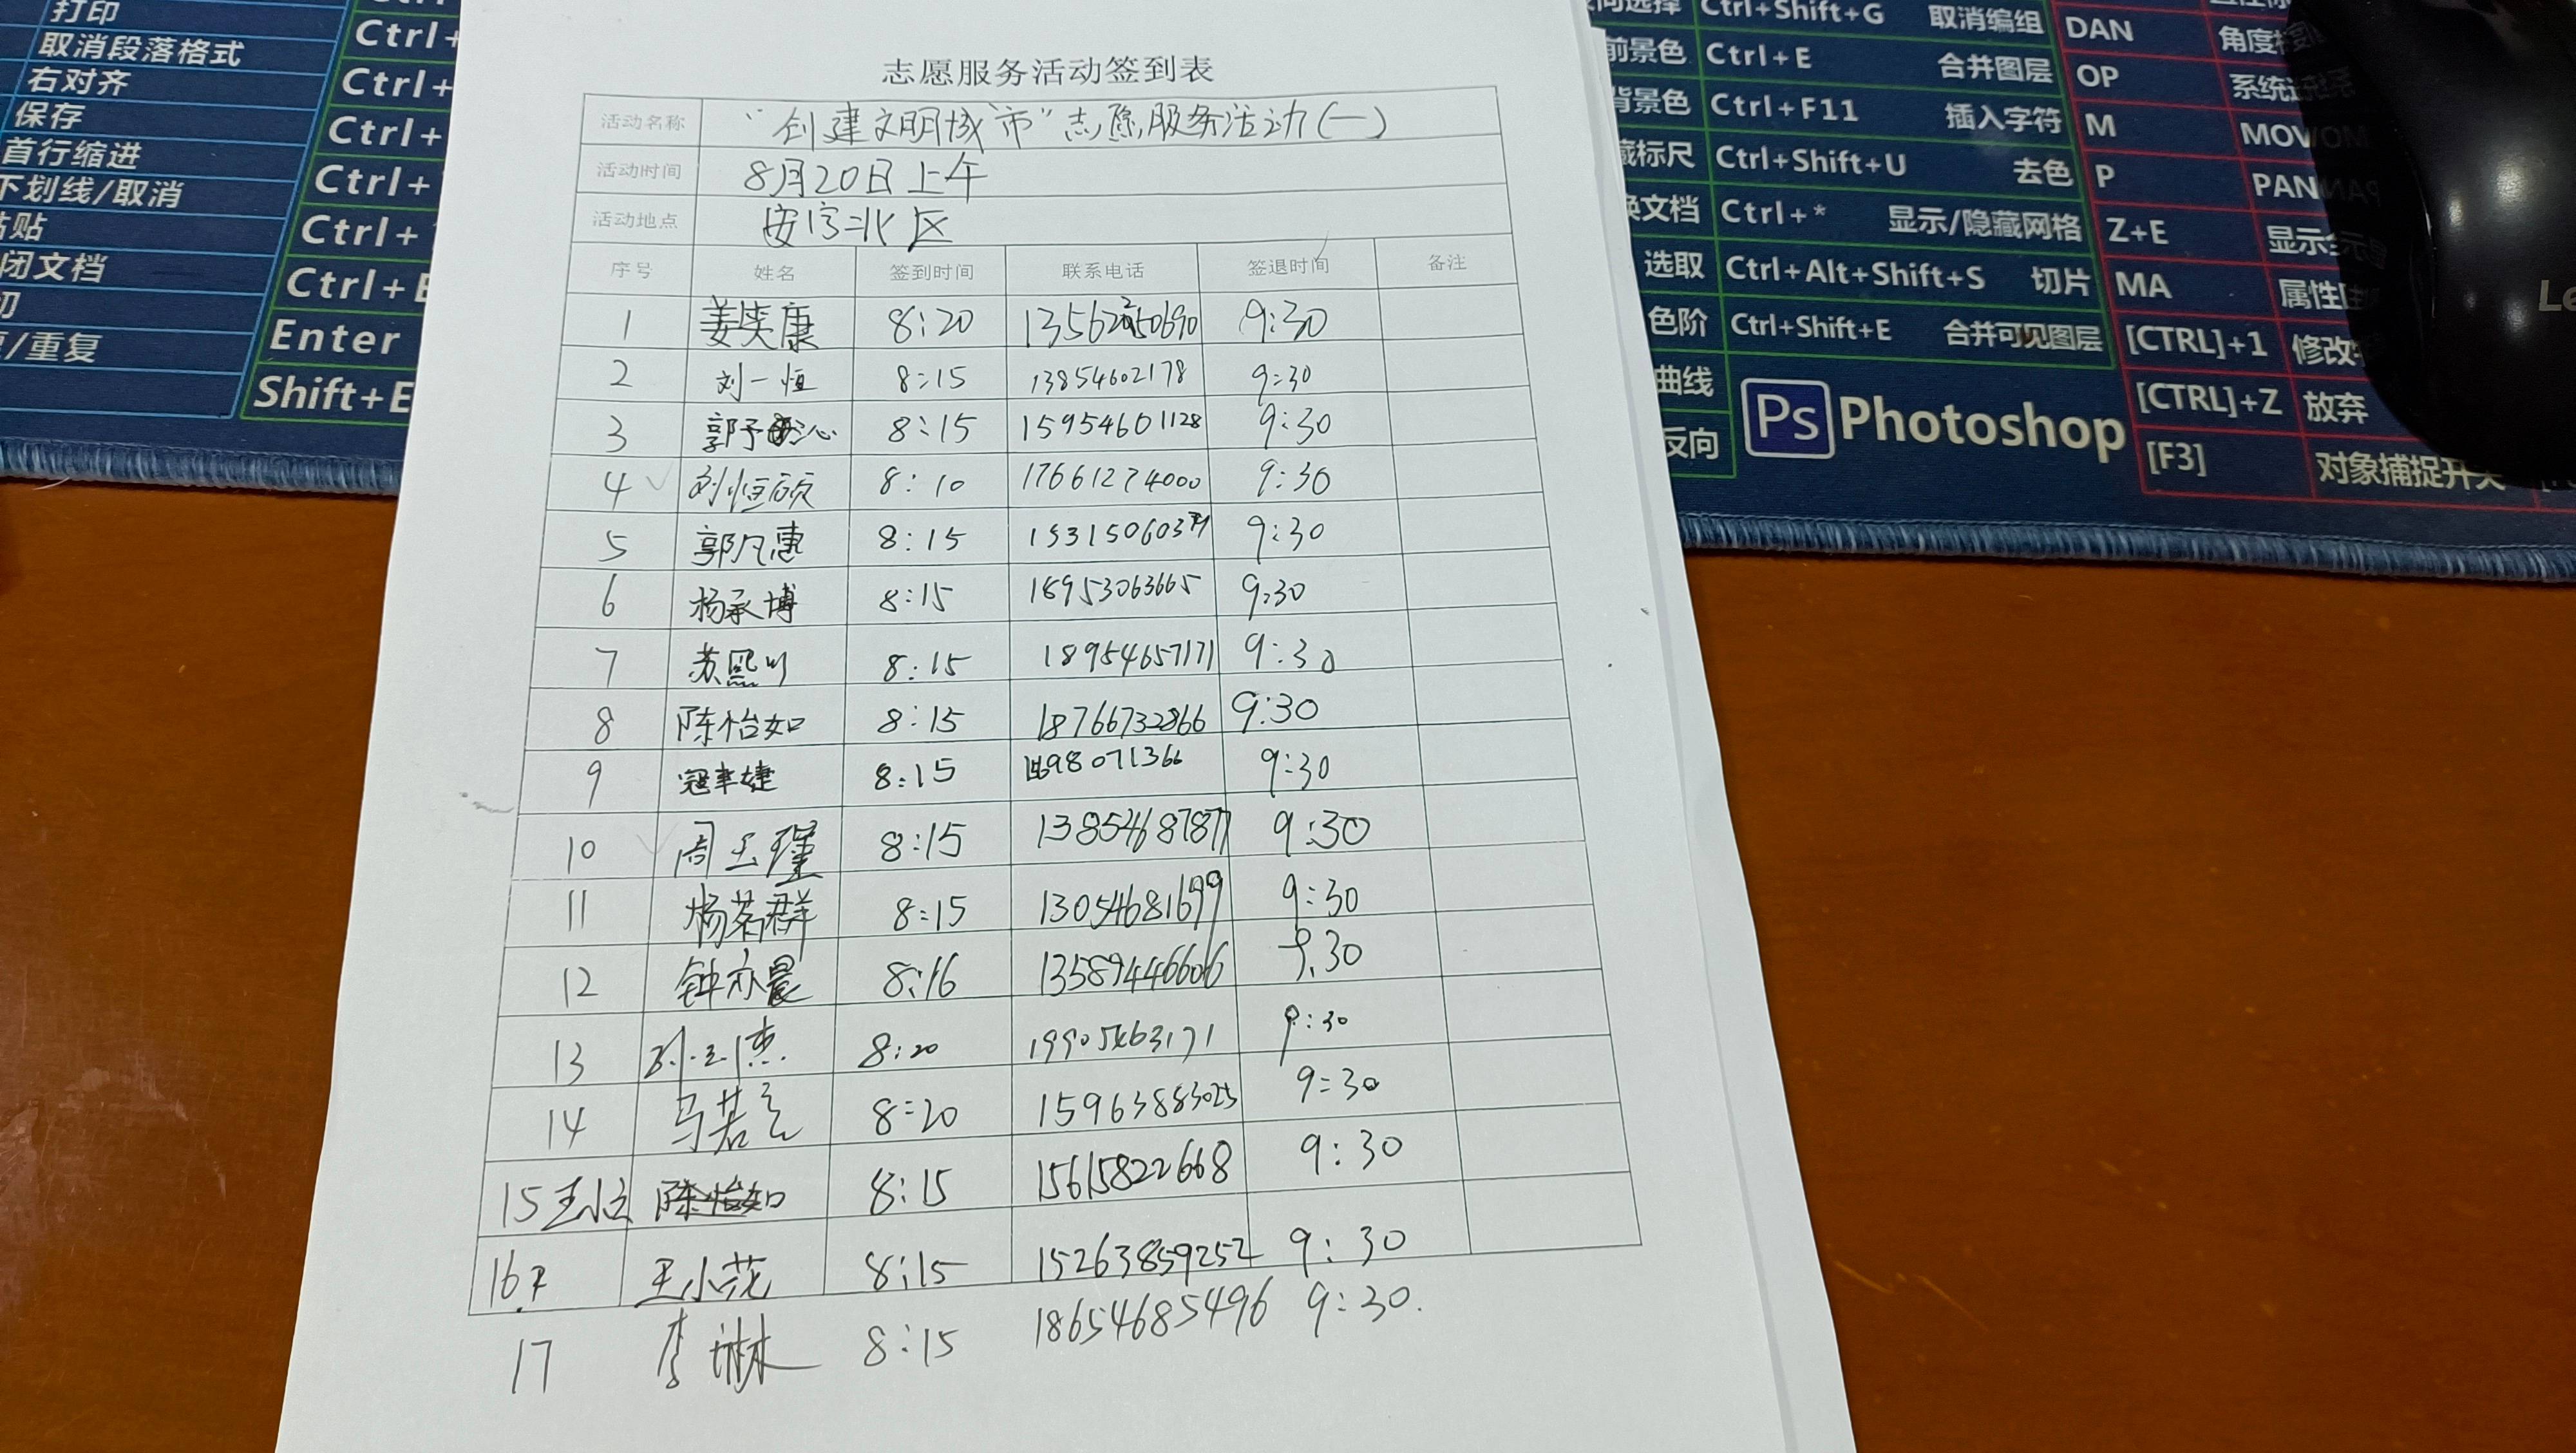 打印
取消段落格式 Ctrl+
右对齐 Ctrl+
保存 Ctrl+
首行缩进 Ctrl+
下划线/取消 Ctrl+
粘贴 Ctrl+
闭文档 Ctrl+E
Enter
/重复 Shift+E
志愿服务活动签到表
活动名称 "创建文明城市"志愿服务活动(一)
活动时间 8月20日上午
活动地点 安宁北区
序号 姓名 签到时间 联系电话 签退时间 备注
1 姜奕康 8:20 9:30
2 刘一恒 8:15 13854602178 9:30
3 郭予沁 8:15 15954601128 9:30
4 刘恒硕 8:10 17661274000 9:30
5 郭凡惠 8:15 9:30
6 杨承博 8:15 18953063665 9:30
7 苏熙 8:15 18954657171 9:30
8 陈怡如 8:15 18766732866 9:30
9 8:15 9:30
10 周玉瑾 8:15 13854687877 9:30
11 杨茗群 8:15 13054681699 9:30
12 钟亦晨 8:16 9:30
13 8:20 19905463171 9:30
14 马若言 8:20 15963883025 9:30
15 8:15 15615822668 9:30
16 王小花 8:15 15263859252 9:30
17 李琳 8:15 18654685496 9:30.
Ctrl+Shift+G 取消编组
前景色 Ctrl+E 合并图层
背景色 Ctrl+F11 插入字符
藏标尺 Ctrl+Shift+U 去色
换文档 Ctrl+* 显示/隐藏网格
选取 Ctrl+Alt+Shift+S 切片
色阶 Ctrl+Shift+E 合并可见图层
曲线
反向
Ps Photoshop
DAN 角度
OP 系统
M MOV
P PAN
Z+E 显示
MA 属性
[CTRL]+1 修改
[CTRL]+Z 放弃
[F3] 对象捕捉开关
Le